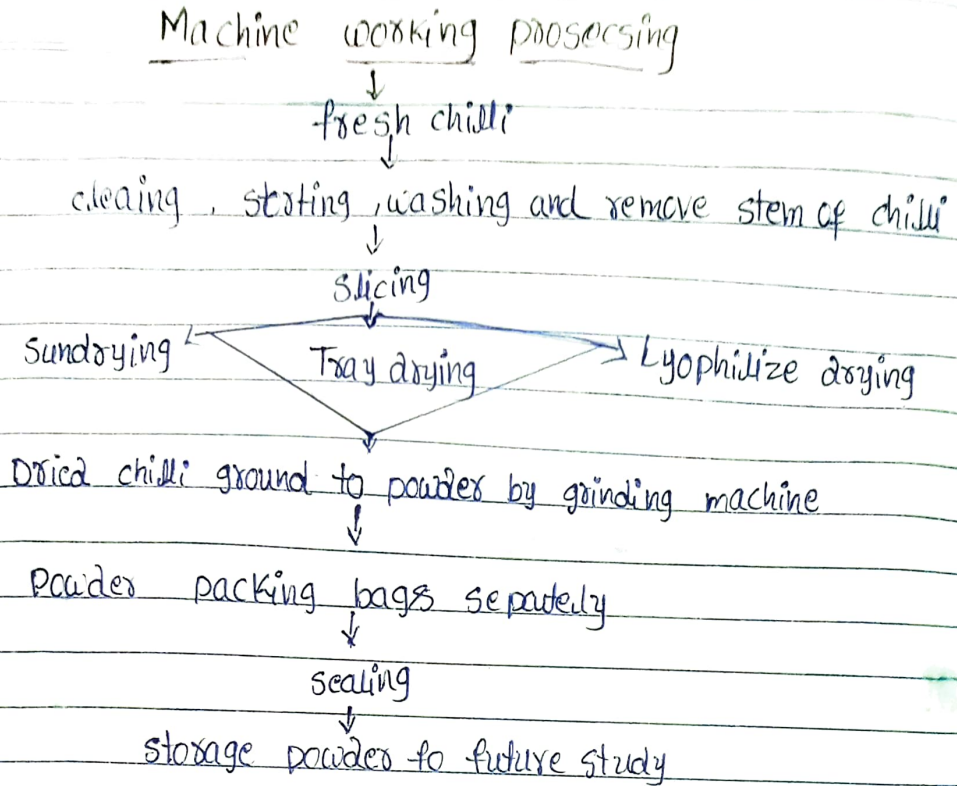 Machine working prosecsing
fresh chilli
cleaing, storting, washing and remove stem of chilli
Slicing
Sundrying Tray drying Lyophilize drying
Dried chilli ground to powder by grinding machine
Powder packing bags sepadely
sealing
storage powder fo future study